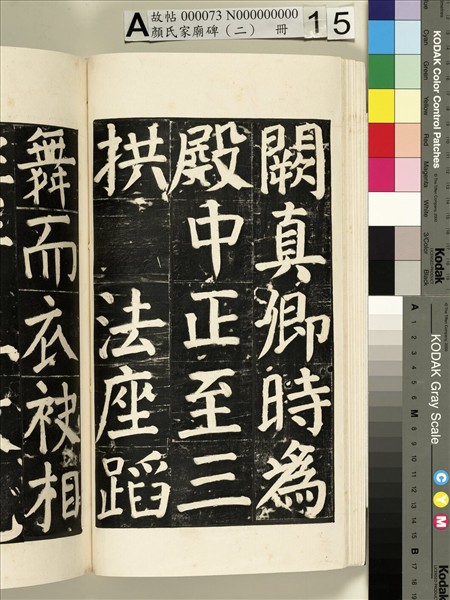 A 故帖 000073 N000000000 15
顏氏家廟碑（二） 冊
闕真卿時為
殿中正至三
拱 法座蹈
舞而衣被相
KODAK Color Control Patches
Cyan
Green
Yellow
Red
Magenta
White
3/Color
Black
Kodak
KODAK Gray Scale
C Y M
Kodak
A 1 2 3 4 5 6 M 8 9 10 11 12 13 14 15 B 17 18 19